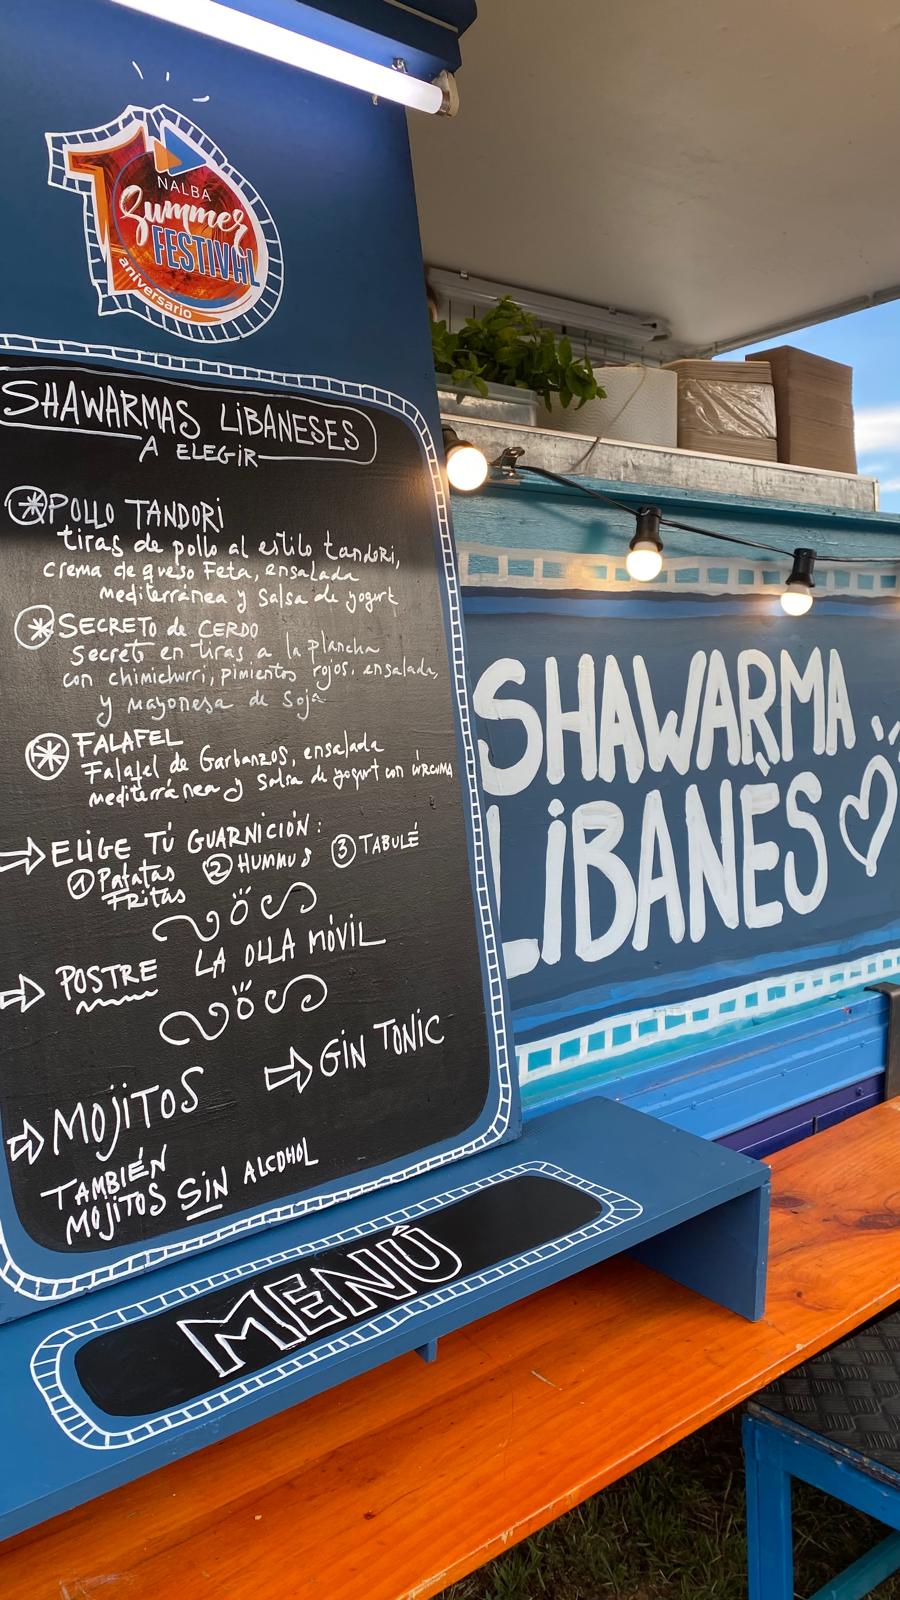 10
NALBA
Summer
FESTIVAL
aniversario
SHAWARMAS LIBANESES
A ELEGIR
POLLO TANDORI
tiras de pollo al estilo tandori,
crema de queso Feta, ensalada
mediterránea y salsa de yogurt
SECRETO de CERDO
Secreto en tiras a la plancha
con chimichurri, pimientos rojos, ensalada,
y mayonesa de soja
FALAFEL
Falafel de Garbanzos, ensalada
mediterránea y salsa de yogurt con CÚRCUMA
ELIGE TÚ GUARNICIÓN:
1 Patatas Fritas 2 HUMMUS 3 TABULÉ
LA OLLA MÓVIL
POSTRE
GIN TONIC
MOJITOS
TAMBIÉN
MOJITOS SIN ALCOHOL
MENÚ
SHAWARMA
LIBANÈS